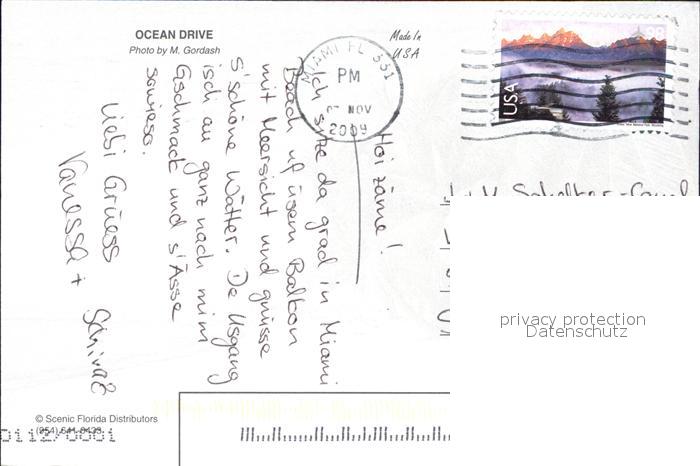 OCEAN DRIVE
Photo by M. Gordash
Made In
USA
MIAMI FL 331
PM
NOV
2009
98
USA
Hoi zäme!
Ich sitze da grad in Miami
Beach uf üsem Balkon
mit Meersicht und gnüsse
s'schöne Wätter. De Usgang
isch au ganz nach mim
Gschmack und s'Ässe
sowieso.
Liebi Grüess
Vanessa +
privacy protection
Datenschutz
© Scenic Florida Distributors
(954)